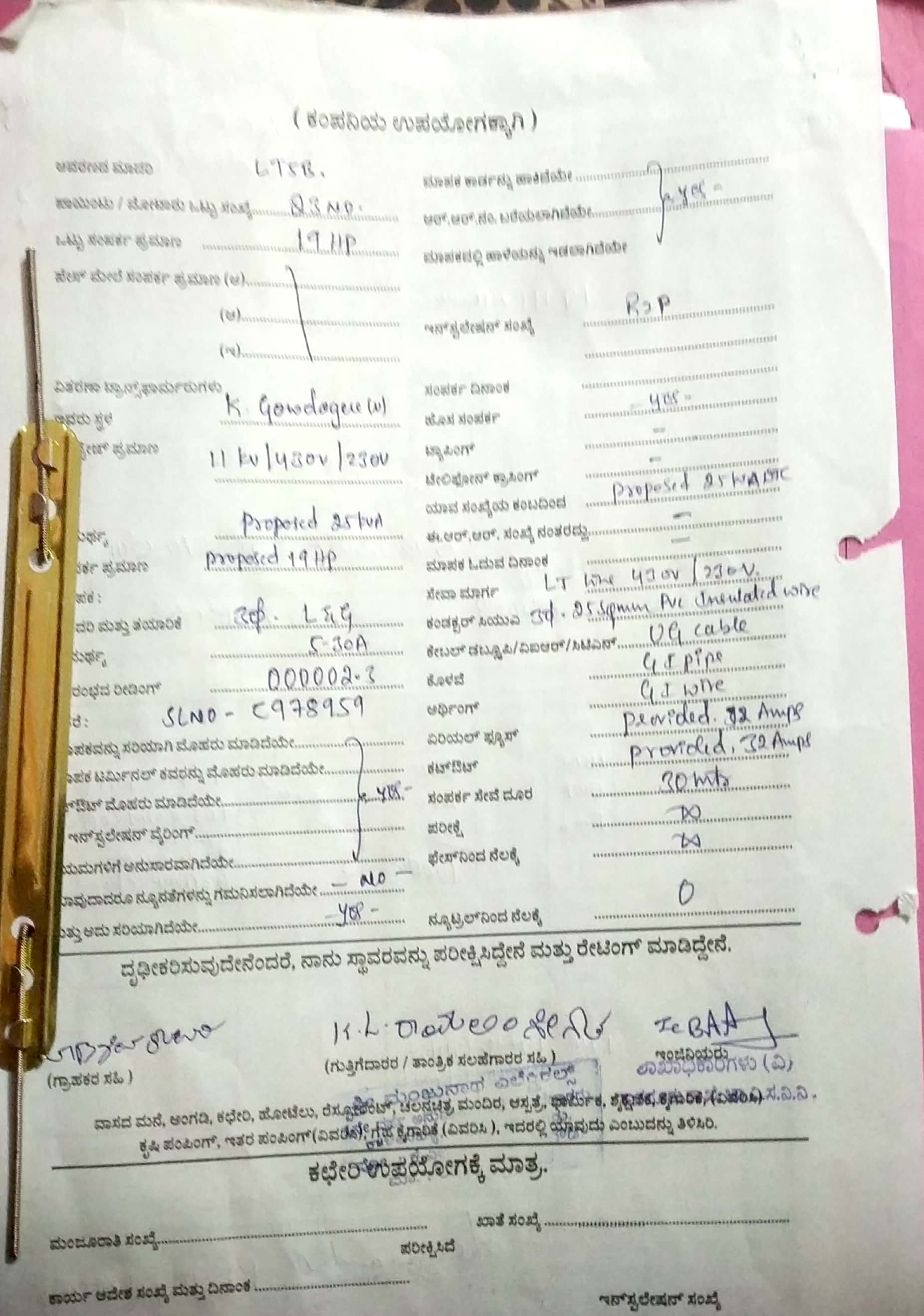 ( ಕಂಪನಿಯ ಉಪಯೋಗಕ್ಕಾಗಿ )
ಆವರಣದ ಮಾದರಿ LT5B.
ಮಾಪಕ ಕಾರ್ಡನ್ನು ಹಾಕಿದೆಯೇ
ಪಾಯಿಂಟು / ಮೋಟಾರು ಒಟ್ಟು ಸಂಖ್ಯೆ 03 NO.
ಆರ್.ಆರ್.ನಂ. ಬರೆಯಲಾಗಿದೆಯೇ - yes -
ಒಟ್ಟು ಸಂಪರ್ಕ ಪ್ರಮಾಣ 19 HP
ಮಾಪಕದಲ್ಲಿ ಹಾಳೆಯನ್ನು ಇಡಲಾಗಿದೆಯೇ
ಫೇಸ್ ಮೇಲೆ ಸಂಪರ್ಕ ಪ್ರಮಾಣ (ಅ)
(ಆ)
ಇನ್‌ಸ್ಟಲೇಷನ್ ಸಂಖ್ಯೆ RJP
(ಇ)
ವಿತರಣಾ ಟ್ರಾನ್ಸ್‌ಫಾರ್ಮರುಗಳು
ಸಂಪರ್ಕ ದಿನಾಂಕ
ಇದರು ಸ್ಥಳ K. Gowdagere (v)
ಹೊಸ ಸಂಪರ್ಕ - yes -
ವೋಲ್ಟೇಜ್ ಪ್ರಮಾಣ 11 KV / 430V / 230V
ಟ್ಯಾಪಿಂಗ್ -
ಟೆಲಿಫೋನ್ ಕ್ರಾಸಿಂಗ್ -
ಯಾವ ಸಂಖ್ಯೆಯ ಕಂಬದಿಂದ proposed 25 KVA DTC
ರ್ಥ್ಯ proposed 25 KVA
ಈ.ಆರ್.ಆರ್. ಸಂಖ್ಯೆ ನಂತರದ್ದು -
ರ್ಕ ಪ್ರಮಾಣ proposed 19 HP
ಮಾಪಕ ಓದುವ ದಿನಾಂಕ -
ಪಕ :
ಸೇವಾ ಮಾರ್ಗ LT line 430V / 230V.
ದರಿ ಮತ್ತು ತಯಾರಿಕೆ 3ф. L&G
ಕಂಡಕ್ಟರ್ ಸಿಯುವಿ 3ф. 25 sqmm PVC Insulated wire
ರ್ಥ್ಯ 5-30A
ಕೇಬಲ್ ಡಬ್ಲ್ಯೂಪಿ/ವಿಐಆರ್/ಸಿಟಿಎಸ್ UG cable
ರಂಭದ ರೀಡಿಂಗ್ 000002.3
ಕೊಳವೆ G I pipe
ರೆ : SLNO - C978959
ಅರ್ಥಿಂಗ್ G I wire
ಾಪಕವನ್ನು ಸರಿಯಾಗಿ ಮೊಹರು ಮಾಡಿದೆಯೇ
ಏರಿಯಲ್ ಫ್ಯೂಸ್ provided. 32 Amps
ಾಪಕ ಟರ್ಮಿನಲ್ ಕವರನ್ನು ಮೊಹರು ಮಾಡಿದೆಯೇ
ಕಟ್‌ಔಟ್ provided, 32 Amps
ಟ್‌ಔಟ್ ಮೊಹರು ಮಾಡಿದೆಯೇ - yes -
ಸಂಪರ್ಕ ಸೇವೆ ದೂರ 30 mtr
ಇನ್‌ಸ್ಟಲೇಷನ್ ವೈರಿಂಗ್
ಪರೀಕ್ಷೆ
ಯಮಗಳಿಗೆ ಅನುಸಾರವಾಗಿದೆಯೇ
ಫೇಸ್‌ನಿಂದ ನೆಲಕ್ಕೆ
ಾವುದಾದರೂ ನ್ಯೂನತೆಗಳನ್ನು ಗಮನಿಸಲಾಗಿದೆಯೇ - NO -
ತ್ತು ಅದು ಸರಿಯಾಗಿದೆಯೇ - yes -
ನ್ಯೂಟ್ರಲ್‌ನಿಂದ ನೆಲಕ್ಕೆ 0
ದೃಢೀಕರಿಸುವುದೇನೆಂದರೆ, ನಾನು ಸ್ಥಾವರವನ್ನು ಪರೀಕ್ಷಿಸಿದ್ದೇನೆ ಮತ್ತು ರೇಟಿಂಗ್ ಮಾಡಿದ್ದೇನೆ.
(ಗ್ರಾಹಕರ ಸಹಿ )
(ಗುತ್ತಿಗೆದಾರರ / ತಾಂತ್ರಿಕ ಸಲಹೆಗಾರರ ಸಹಿ )
ಇಂಜಿನಿಯರು
ಶಾಖಾಧಿಕಾರಿಗಳು (ವಿ)
ವಾಸದ ಮನೆ, ಅಂಗಡಿ, ಕಛೇರಿ, ಹೋಟೆಲು, ರೆಸ್ಟೋರೆಂಟ್, ಚಲನಚಿತ್ರ ಮಂದಿರ, ಆಸ್ಪತ್ರೆ, ಧಾರ್ಮಿಕ, ಶೈಕ್ಷಣಿಕ, ಕೈಗಾರಿಕೆ, (ವಿವರಿಸಿ)
ಕೃಷಿ ಪಂಪಿಂಗ್, ಇತರ ಪಂಪಿಂಗ್(ವಿವರಿಸಿ), ಗೃಹ ಕೈಗಾರಿಕೆ (ವಿವರಿಸಿ ), ಇದರಲ್ಲಿ ಯಾವುದು ಎಂಬುದನ್ನು ತಿಳಿಸಿರಿ.
ಕಛೇರಿ ಉಪಯೋಗಕ್ಕೆ ಮಾತ್ರ.
ಮಂಜೂರಾತಿ ಸಂಖ್ಯೆ
ಖಾತೆ ಸಂಖ್ಯೆ
ಪರೀಕ್ಷಿಸಿದೆ
ಕಾರ್ಯ ಆದೇಶ ಸಂಖ್ಯೆ ಮತ್ತು ದಿನಾಂಕ
ಇನ್‌ಸ್ಟಲೇಷನ್ ಸಂಖ್ಯೆ